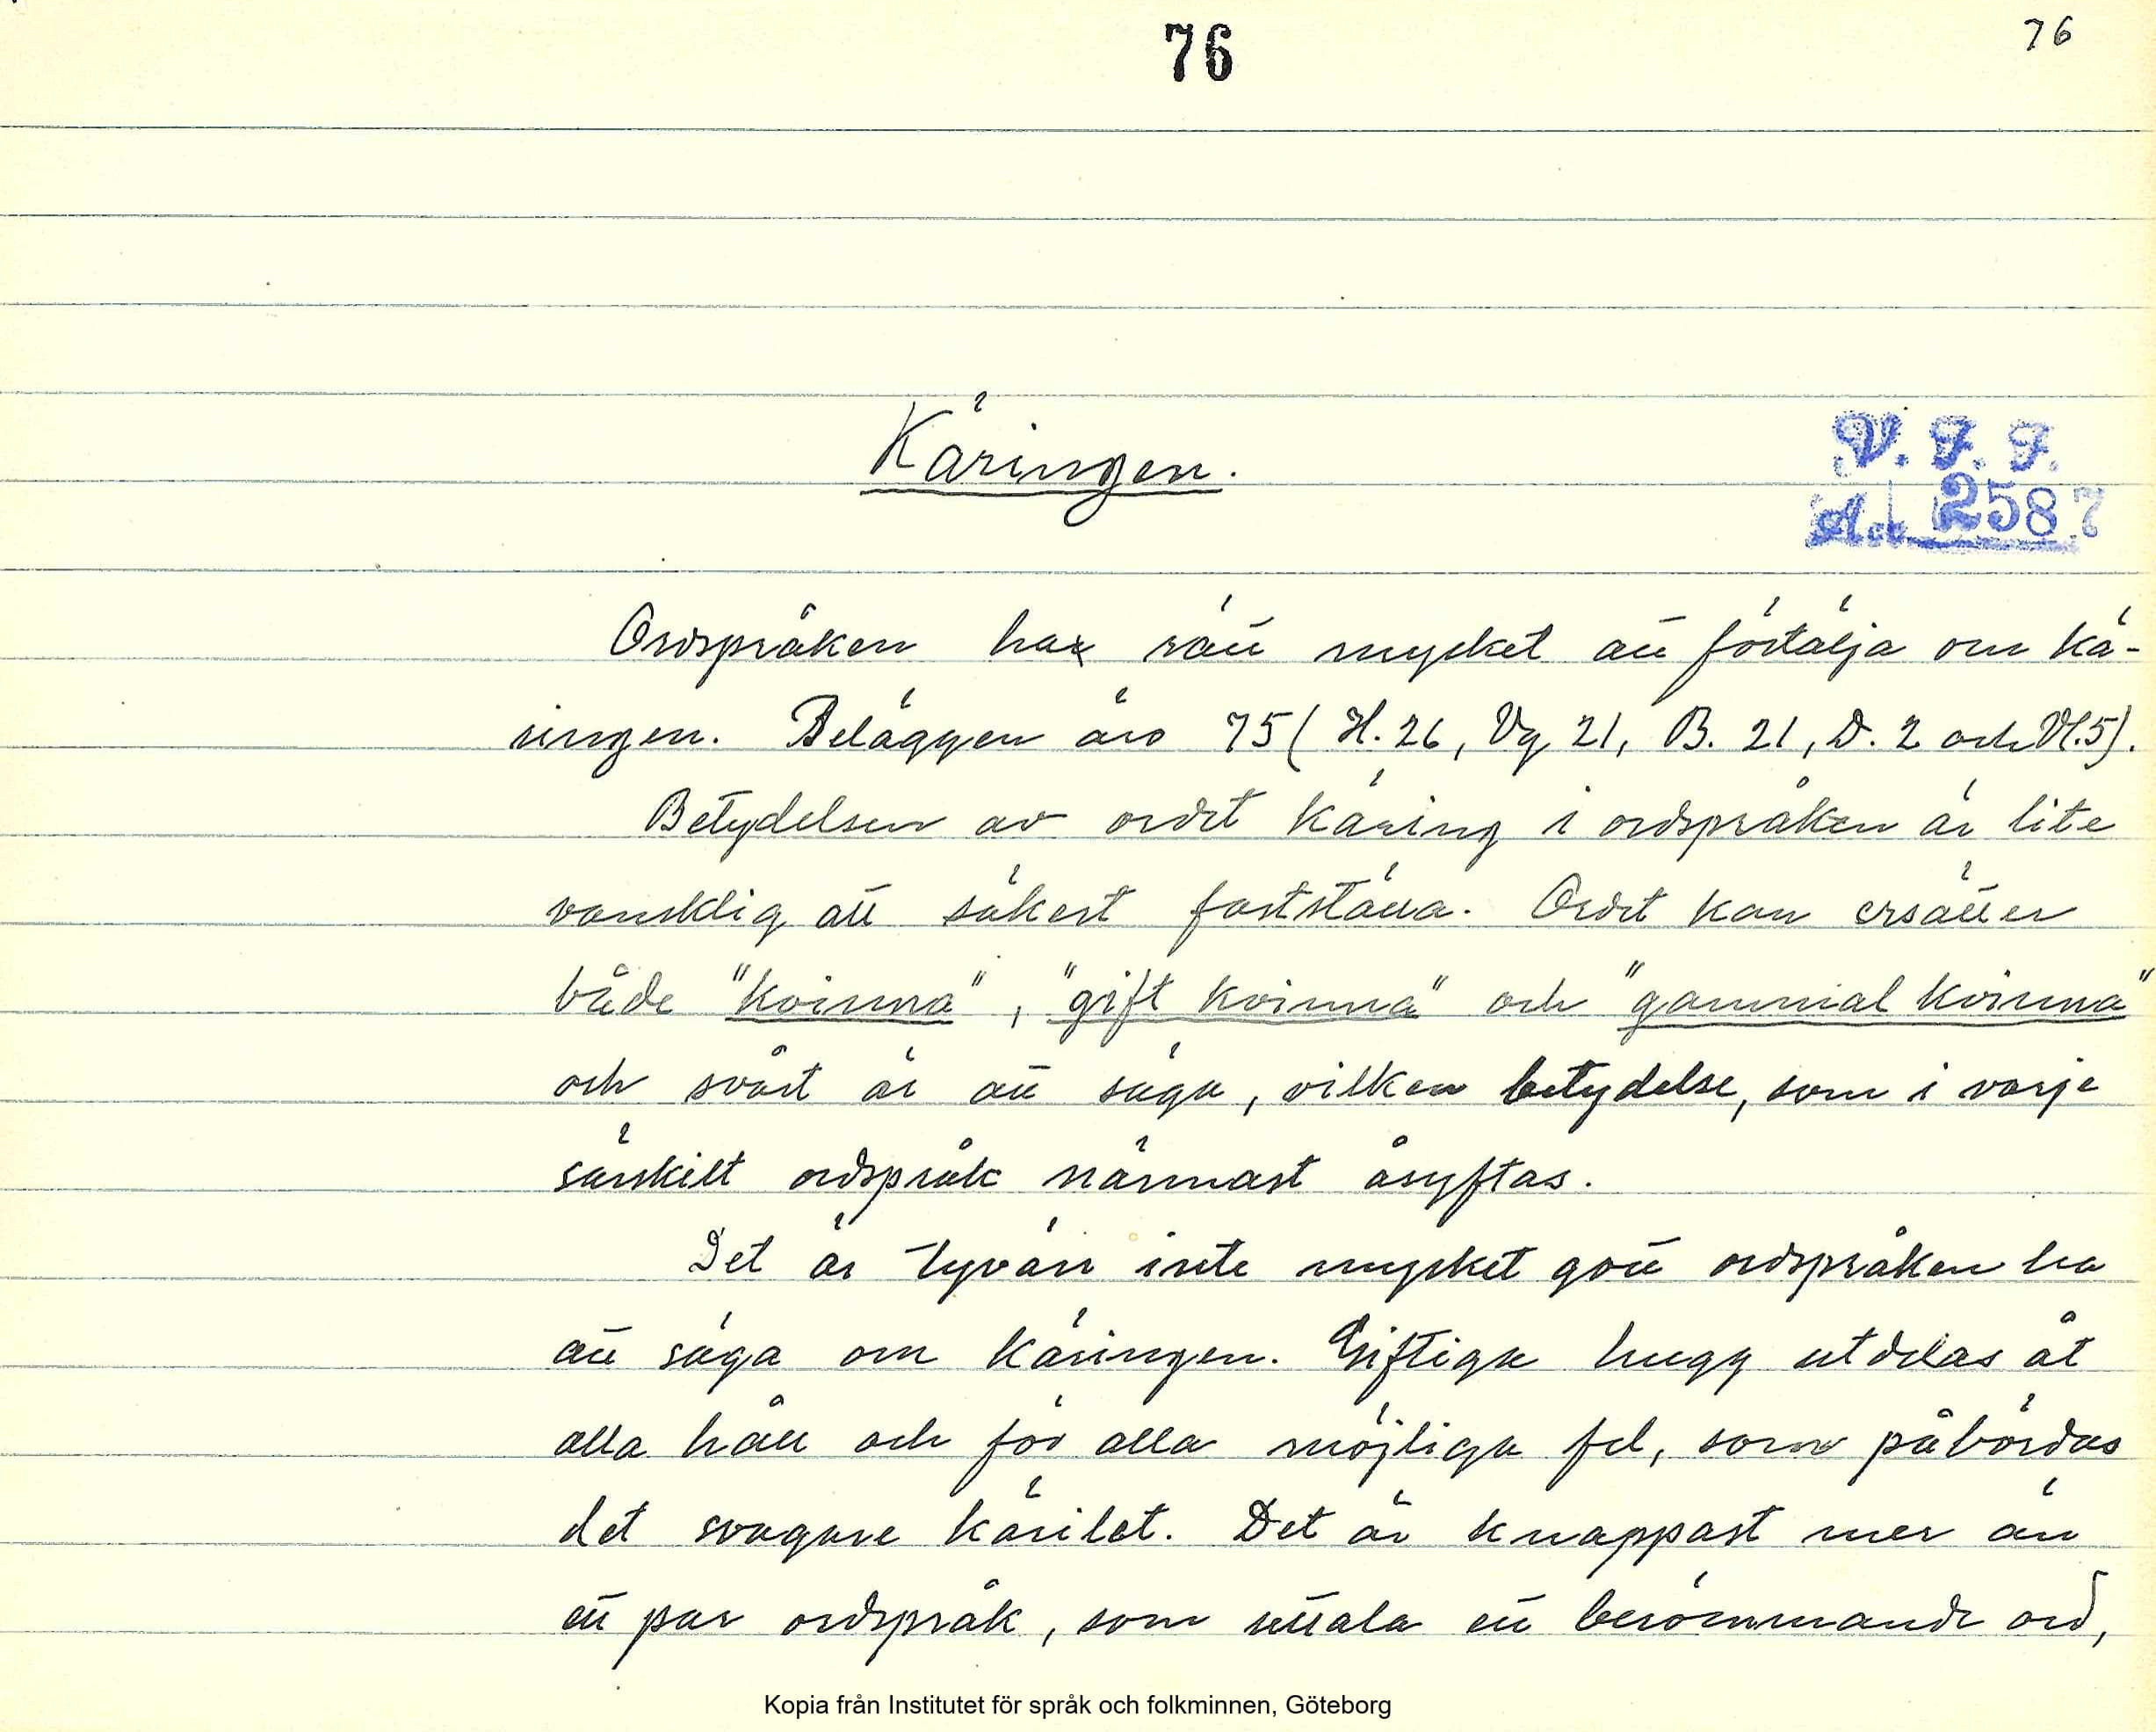 76
76
Käringen.
V. F. F.
Acc 2587
Ordspråken ha rätt mycket att förtälja om kä-
ringen. Beläggen äro 75 (H. 26, Vg 21, B. 21, D. 2 och Vl. 5).
Betydelsen av ordet käring i ordspråken är lite
vansklig att säkert fastställa. Ordet kan ersätter
både "kvinna", "gift kvinna" och "gammal kvinna"
och svårt är att säga, vilken betydelse, som i varje
särskilt ordspråk närmast åsyftas.
Det är tyvärr inte mycket gott ordspråken ha
att säga om käringen. Giftiga hugg utdelas åt
alla håll och för alla möjliga fel, som påbördas
det svagare kärilet. Det är knappast mer än
ett par ordspråk, som uttala ett berömmande ord,
Kopia från Institutet för språk och folkminnen, Göteborg